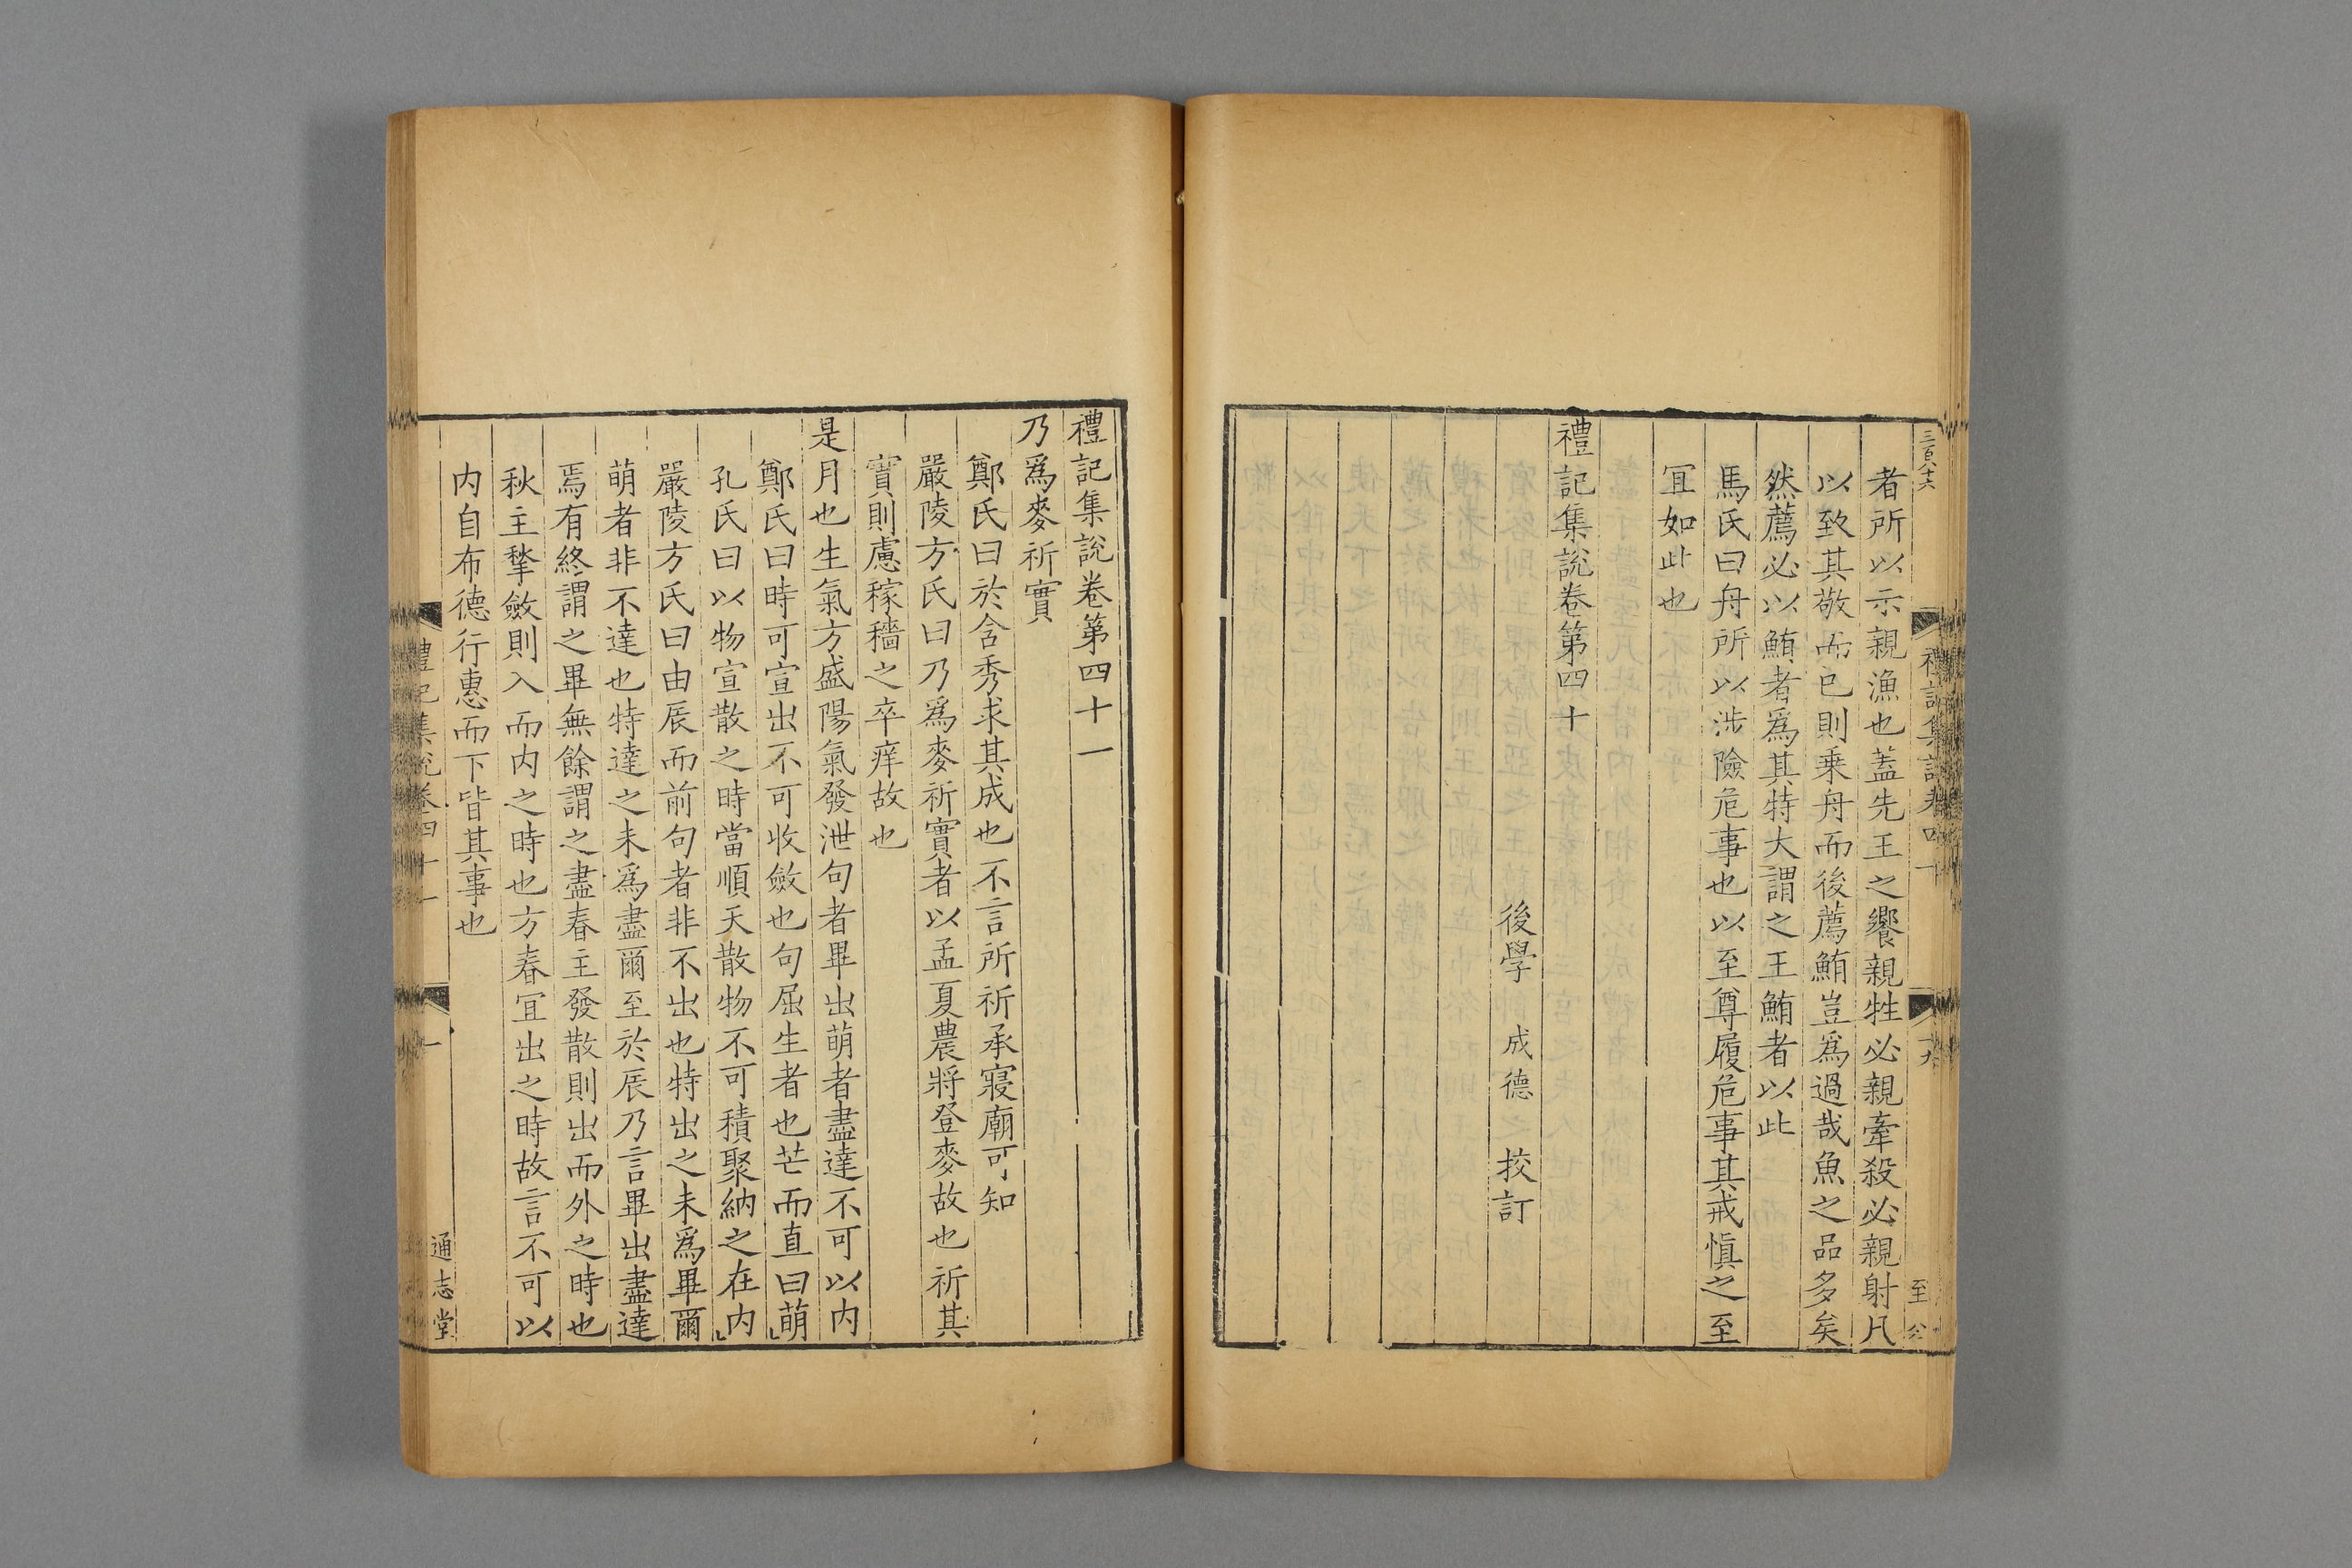 三百八十六
禮記集說卷四十
者所以示親漁也蓋先王之饗親牲必親牽殺必親射凡
以致其敬而已則乗舟而後薦鮪豈爲過哉魚之品多矣
然薦必以鮪者爲其特大謂之王鮪者以此
馬氏曰舟所以涉險危事也以至尊履危事其戒愼之至
冝如此也
禮記集說卷第四十
後學 成德 挍訂
禮記集說卷第四十一
乃爲麥祈實
鄭氏曰於含秀求其成也不言所祈承寢廟可知
嚴陵方氏曰乃爲麥祈實者以孟夏農將登麥故也祈其
實則慮稼穡之卒痒故也
是月也生氣方盛陽氣發泄句者畢出萌者盡達不可以内
鄭氏曰時可宣出不可收斂也句屈生者也芒而直曰萌
孔氏曰以物宣散之時當順天散物不可積聚納之在内
嚴陵方氏曰由辰而前句者非不出也特出之未爲畢爾
萌者非不達也特達之未爲盡爾至於辰乃言畢出盡達
焉有終謂之畢無餘謂之盡春主發散則出而外之時也
秋主揫斂則入而内之時也方春冝出之時故言不可以
内自布德行惠而下皆其事也
禮記集說卷四十一
一
通志堂